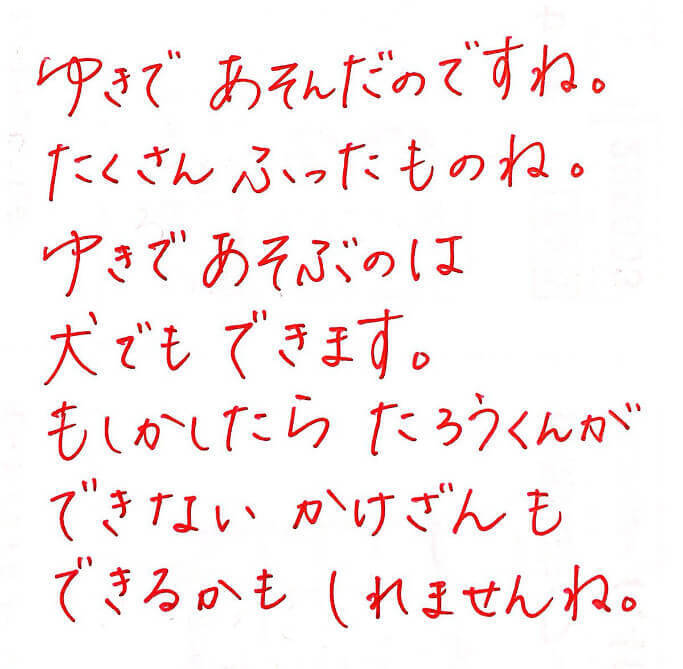 ゆきで あそんだのですね。
たくさん ふったものね。
ゆきで あそぶのは
犬でも できます。
もしかしたら たろうくんが
できない かけざんも
できるかも しれませんね。